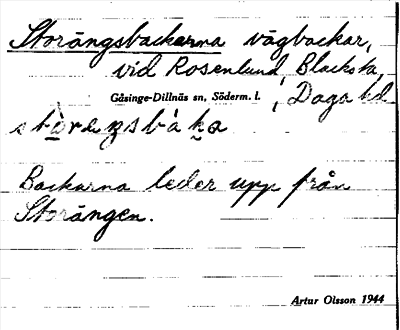 Storängsbackarna vägbackar,
vid Rosenlund, Blacksta,
Gåsinge-Dillnäs sn, Söderm. l. , Daga hd
Backarna leder upp från
Storängen.
Artur Olsson 1944